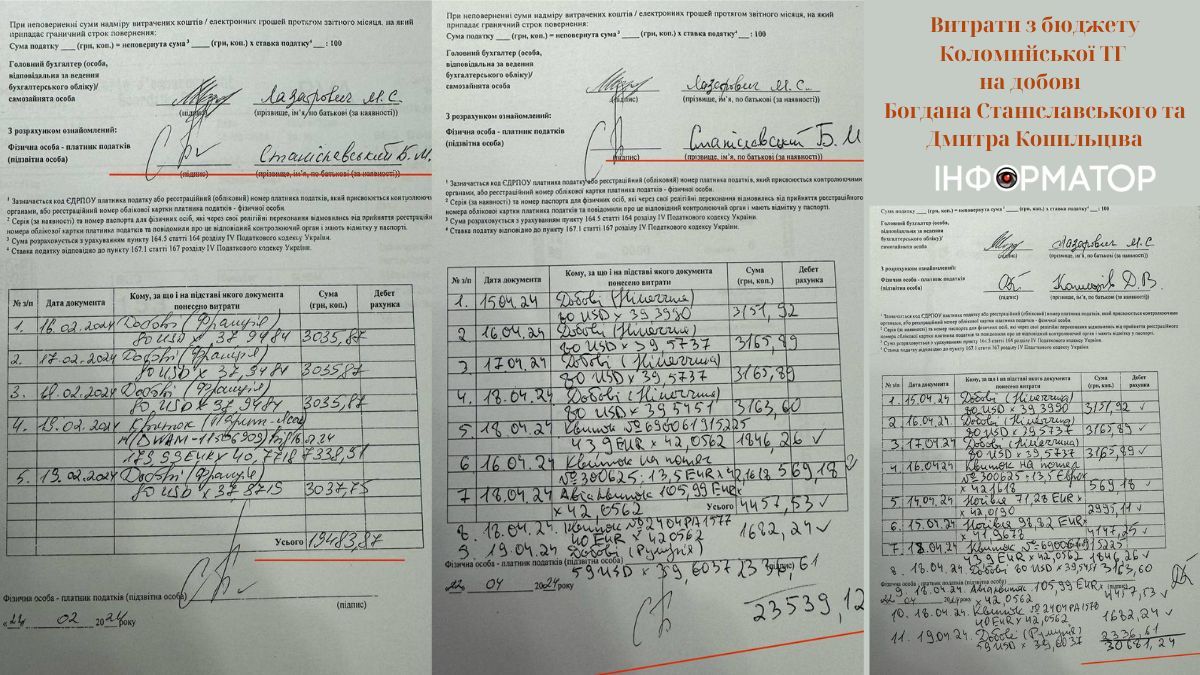 При неповерненні суми надміру витрачених коштів / електронних грошей протягом звітного місяця, на який
припадає граничний строк повернення:
Сума податку ___ (грн, коп.) = неповернута сума ³ ____ (грн, коп.) х ставка податку⁴ __ : 100
Головний бухгалтер (особа,
відповідальна за ведення
бухгалтерського обліку)/
самозайнята особа
Лазарович М.С.
(підпис) (прізвище, ім'я, по батькові (за наявності))
З розрахунком ознайомлений:
Фізична особа - платник податків
(підзвітна особа)
Станіславський Б.М.
(підпис) (прізвище, ім'я, по батькові (за наявності))
¹ Зазначається код ЄДРПОУ платника податку або реєстраційний (обліковий) номер платника податків, який присвоюється контролюючи
органами, або реєстраційний номер облікової картки платника податків - фізичної особи.
² Серія (за наявності) та номер паспорта для фізичних осіб, які через свої релігійні переконання відмовились від прийняття реєстраційн
номера облікової картки платника податків та повідомили про це відповідний контролюючий орган і мають відмітку у паспорті.
³ Сума розраховується з урахуванням пункту 164.5 статті 164 розділу IV Податкового кодексу України.
⁴ Ставка податку відповідно до пункту 167.1 статті 167 розділу IV Податкового кодексу України.
№ з/п Дата документа Кому, за що і на підставі якого документа понесено витрати Сума (грн, коп.) Дебет рахунка
1. 16.02.2024 Добові (Франція)
80 USD х 37,9484 3035,87
2. 17.02.2024 Добові (Франція)
80 USD х 37,9484 3035,87
3. 18.02.2024 Добові (Франція)
80 USD х 37,9484 3035,87
4. 19.02.2024 Квиток
173,99 EUR х 40,7718 7338,51
5. 19.02.2024 Добові (Франція)
80 USD х 37,8715 3037,75
Усього 19483,87
Фізична особа - платник податків (підзвітна особа)
(підпис)
02 2024 року
При неповерненні суми надміру витрачених коштів / електронних грошей протягом звітного місяця, на який
припадає граничний строк повернення:
Сума податку ___ (грн, коп.) = неповернута сума ³ ____ (грн, коп.) х ставка податку⁴ __ : 100
Головний бухгалтер (особа,
відповідальна за ведення
бухгалтерського обліку)/
самозайнята особа
Лазарович М.С.
(підпис) (прізвище, ім'я, по батькові (за наявності))
З розрахунком ознайомлений:
Фізична особа - платник податків
(підзвітна особа)
Станіславський Б.М
(підпис) (прізвище, ім'я, по батькові (за наявності))
¹ Зазначається код ЄДРПОУ платника податку або реєстраційний (обліковий) номер платника податків, який присвоюється контролюючи
органами, або реєстраційний номер облікової картки платника податків - фізичної особи.
² Серія (за наявності) та номер паспорта для фізичних осіб, які через свої релігійні переконання відмовились від прийняття реєстраційн
номера облікової картки платника податків та повідомили про це відповідний контролюючий орган і мають відмітку у паспорті.
³ Сума розраховується з урахуванням пункту 164.5 статті 164 розділу IV Податкового кодексу України.
⁴ Ставка податку відповідно до пункту 167.1 статті 167 розділу IV Податкового кодексу України.
№ з/п Дата документа Кому, за що і на підставі якого документа понесено витрати Сума (грн, коп.) Дебет рахунка
1. 15.04.24 Добові (Німеччина)
80 USD х 39,3990 3151,92
2 16.04.24 Добові (Німеччина)
80 USD х 39,5737 3165,89
3 17.04.24 Добові (Німеччина)
80 USD х 39,5737 3165,89
4. 18.04.24 Добові (Німеччина)
80 USD х 39,5451 3163,60
5 18.04.24 Квиток № 690061915225
43,9 EUR х 42,0562 1846,26
6 16.04.24 Квиток на потяг
№ 300625; 13,5 EUR х 42,1618 569,18
7 18.04.24 Авіаквиток 105,99 EUR х
х 42,0562 Усього 4457,53
8. 18.04.24. Квиток № 2404PA1577
40 EUR х 42,0562 1682,24
9. 19.04.24 Добові (Румунія)
Фізична особа - платник податків (підзвітна особа)
59 USD х 39,6037 2336,61
22 04 2024 року
23539,12
Витрати з бюджету
Коломийської ТГ
на добові
Богдана Станіславського та
Дмитра Кошільціва
ІНФОРМАТОР
Сума податку ___ (грн, коп.) = неповернута сума ³ ____ (грн, коп.) х ставка податку⁴ __ : 100
Головний бухгалтер (особа,
відповідальна за ведення
бухгалтерського обліку)/
самозайнята особа
Лазарович М.С.
(підпис) (прізвище, ім'я, по батькові (за наявності))
З розрахунком ознайомлений:
Фізична особа - платник податків
(підзвітна особа)
Д.В.
(підпис) (прізвище, ім'я, по батькові (за наявності))
№ з/п Дата документа Кому, за що і на підставі якого документа понесено витрати Сума (грн, коп.) Дебет рахунка
1. 15.04.24 Добові (Німеччина)
80 USD х 39,3990 3151,92
2 16.04.24 Добові (Німеччина)
80 USD х 39,5737 3165,89
3. 17.04.24 Добові (Німеччина)
80 USD х 39,5737 3165,89
4. 16.04.24 Квиток на потяг
№ 300625; 13,5 Євро х
х 42,1618 569,18
5 14.04.24 Ночівля 71,28 EUR х
х 42,0190 2995,11
6. 15.04.24 Ночівля 98,82 EUR х
х 41,9678 4147,25
7. 18.04.24 Квиток № 690061915225
43,9 EUR х 42,0562 1846,26
8. 18.04.24 Добові 80 USD х 39,5451 3163,60
9. 18.04.24 Авіаквиток 105,99 EUR х
х 42,0562 4457,53
10. 18.04.24. Квиток № 2404PA1578
40 EUR х 42,0562 1682,24
11. 19.04.24. Добові (Румунія)
59 USD х 39,6037 2336,61
30681,24